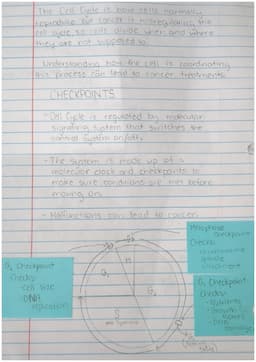 The Cell Cycle is how cells normally
reproduce but cancer is misregulating the
cell cycle so cells divide when and where
they are not supposed to.
Understanding how the cell is coordinating
this process can lead to cancer treatments
CHECKPOINTS
- Cell Cycle is regulated by molecular
signaling system that switches the
control system on/off.
- The system is made up of a
molecular clock and checkpoints to
make sure conditions are met before
moving on.
- Malfunctions can lead to cancer.
Metaphase
checkpoint
Checks:
spindle
attachment
G₂ Checkpoint
Checks:
- Cell size
- DNA
replication
M
G₂
G₁
S
G₁ Checkpoint
Checks:
- Nutrients
- Growth
- DNA
damage